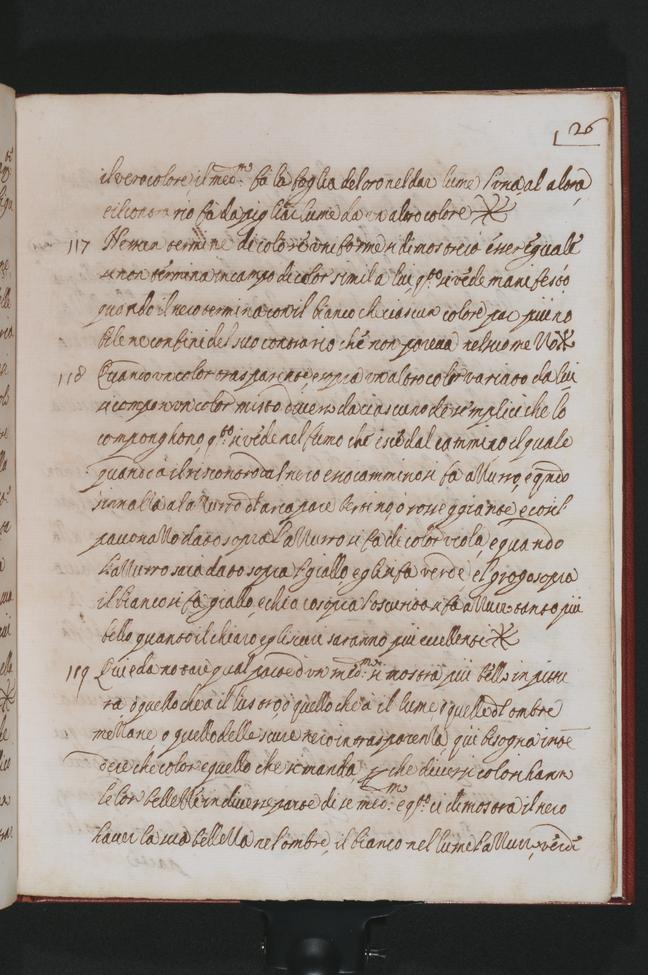 26
il vero colore, il med.mo fà la foglia del oro nel dar lume l'una al altra
e il contrario fà da pigliar lume da un altro colore
117 Nessun termine di colore uniforme si dimostrerà esser eguale
se non termina in campo di color simil a lui q.to si vede manifesto
quando il nero termina con il bianco che ciascun colore par più no
bile ne confini del suo contrario che non parerà nel suo mezzo
118 Quando un color trasparente è sopra un altro color variato da lui
si compon un color misto diverso da ciascuno de semplici che lo
compongono, q.to si vede nel fumo che esce dal cammino il quale
quando è il riscontro al nero esso cammino si fà azzurro, e q.ndo
s'innalza al azzurro del aria pare berettino, o rosseggiante e cosi
pauonazzo dato sopra l'azzurro si fà di color viola, e quando
l'azzurro sarà dato sopra il giallo egli si fà verde, e'l grogo sopra
il bianco si fà giallo, e chiaro sopra l'oscurità si fà azzurro tanto più
bello quanto il chiaro e gli scuri saranno più eccellenti
119 Qui è da notare qual parte d'un med.mo si mostra più bello in pittu
ra o quello che à il lustro o quello che à il lume, o quello del ombre
mezzane o quello delle scure vero in trasparenza, qui bisogna inte
dere che color è quello che si manda che diversi colori hann
le lor bellezze in diverse parte di se med.mo e q.to ci dimostra il nero
hauer la sua bellezza nel'ombre, il bianco nel lume l'azzurro, verde